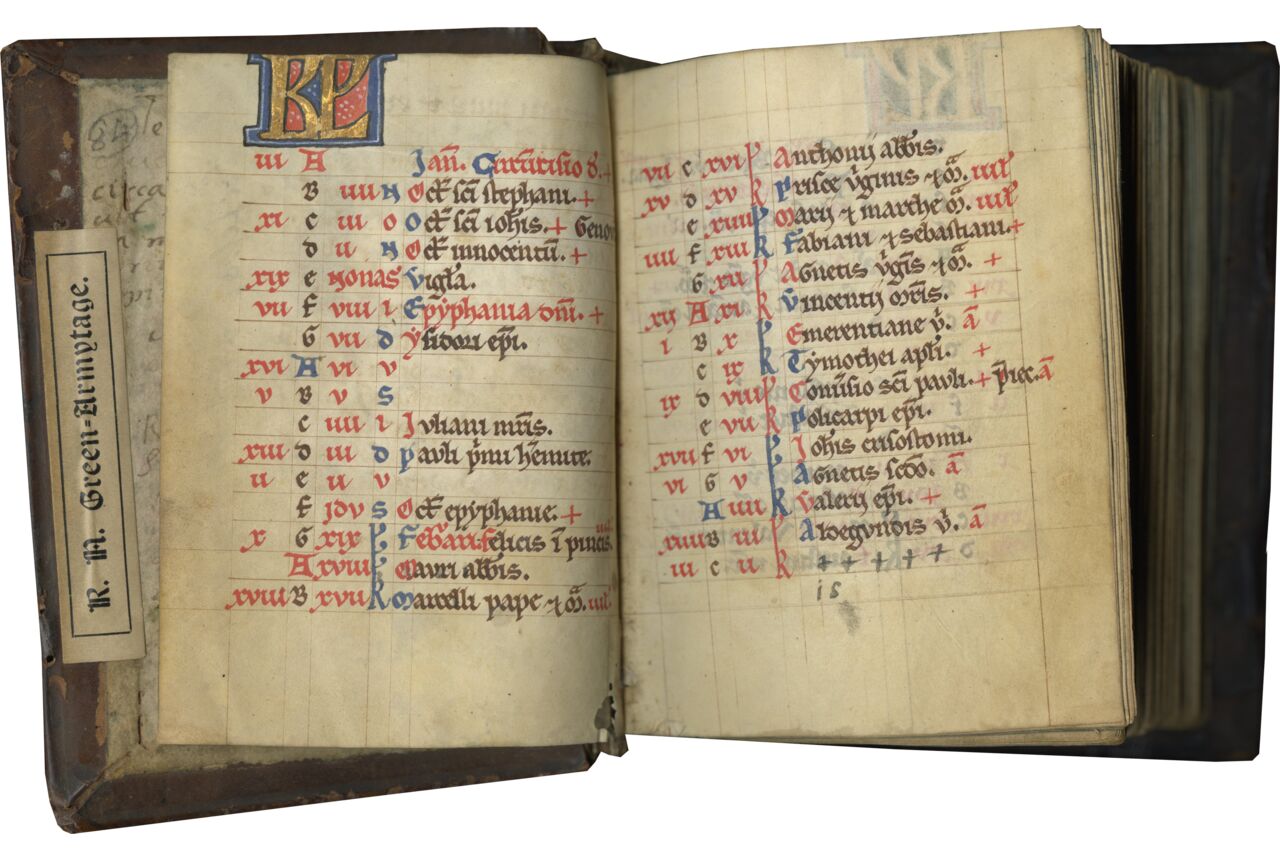 R. N. Green=Armytage.
KL
iii A Jan̄. Circūcisio d̄.+
B iiii N Oct̄ sc̄i stephani.+
xi c iii O Oct̄ sc̄i ioh̄is.+ Geno
d ii N Oct̄ innocentiū.+
xix e Nonas Vigl̄a.
viii f viii i Epyphania dn̄i.+
G vii d Ysidori ep̄i.
xvi A vi v
v B v S
c iiii i Iuliani mr̄is.
xiii d iii d Pauli p̄mi h̄emite.
ii e ii v
f jdv S Oct̄ epyphanie.+
x G xix Febarii felicis ī pincis.
A xviii Mauri abb̄is.
xviii B xvii R Marcelli pape & m̄. iiil̄
vii c xvi Anthonij abb̄is.
xv d xv R Prisce v̄ginis & m̄. iiil̄
e xiiii Marij & marthe m̄. iiil̄
iiii f xiii R Fabiani & sebastiani.+
G xii Agnetis v̄gīs & m̄. +
xii A xi R Vincentij mr̄is. +
i B x Emerentiane v̄. a
c ix R Tymothei apl̄i. +
ix d viii Conv̄sio sc̄i pauli.+ p̄iec. a
e vii R Policarpi ep̄i.
xvii f vi Ioh̄is crisostomi.
vi G v Agnetis scd̄o. a
A iiii R Valerij ep̄i. +
xiiii B iii Aldegundis v̄. a
iii c ii R + + + + +
is